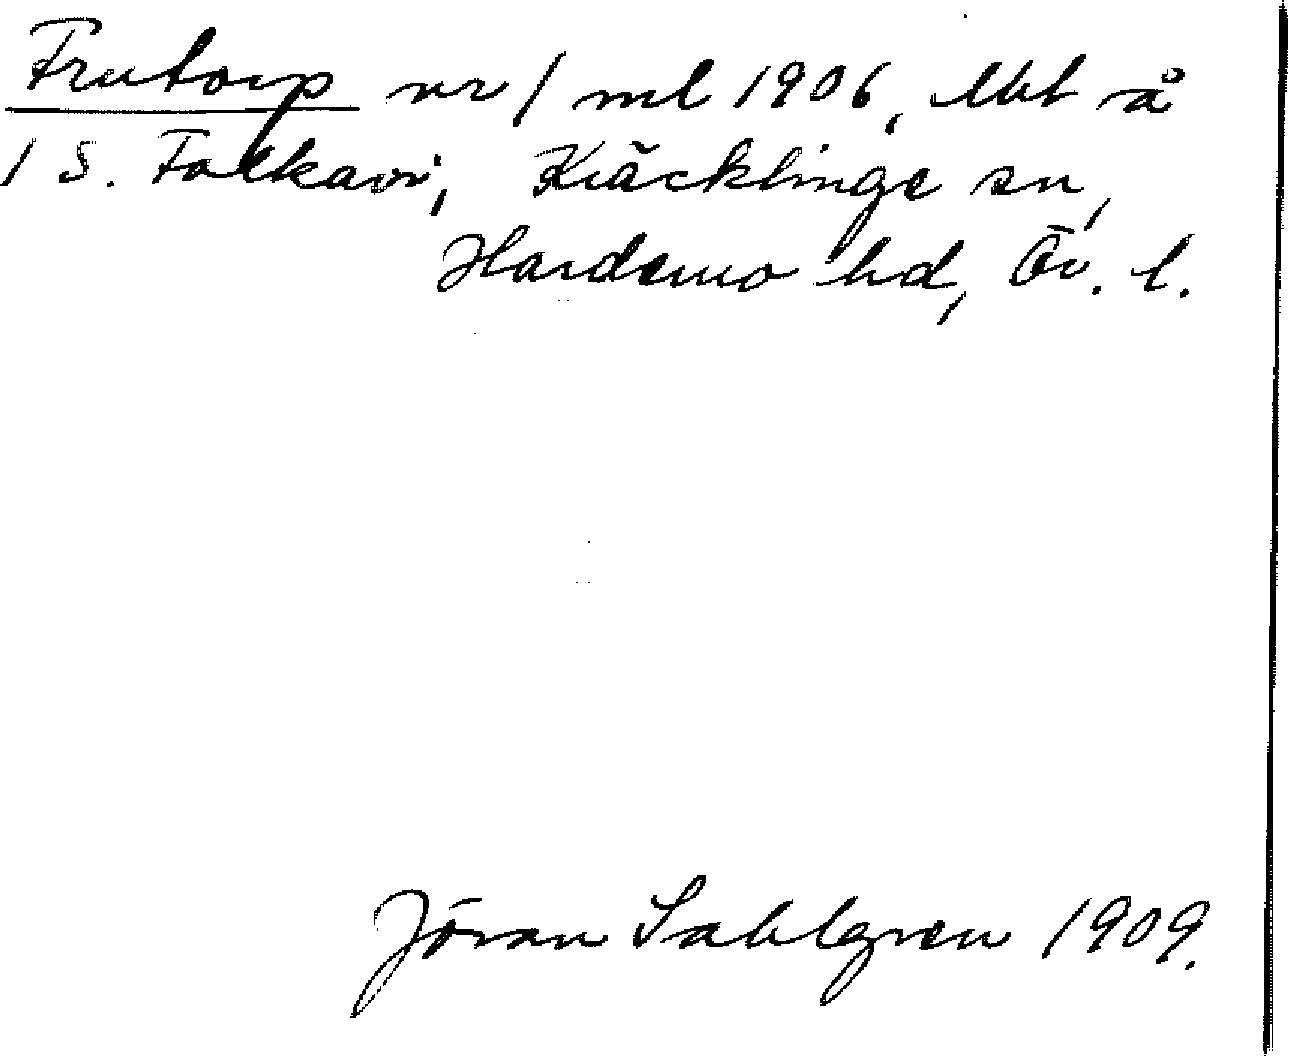 Frutorp nr 1 ml 1906, lht å
1 S. Folkavi, Kräcklinge sn,
Hardemo hd, Ör. l.
Jöran Sahlgren 1909.